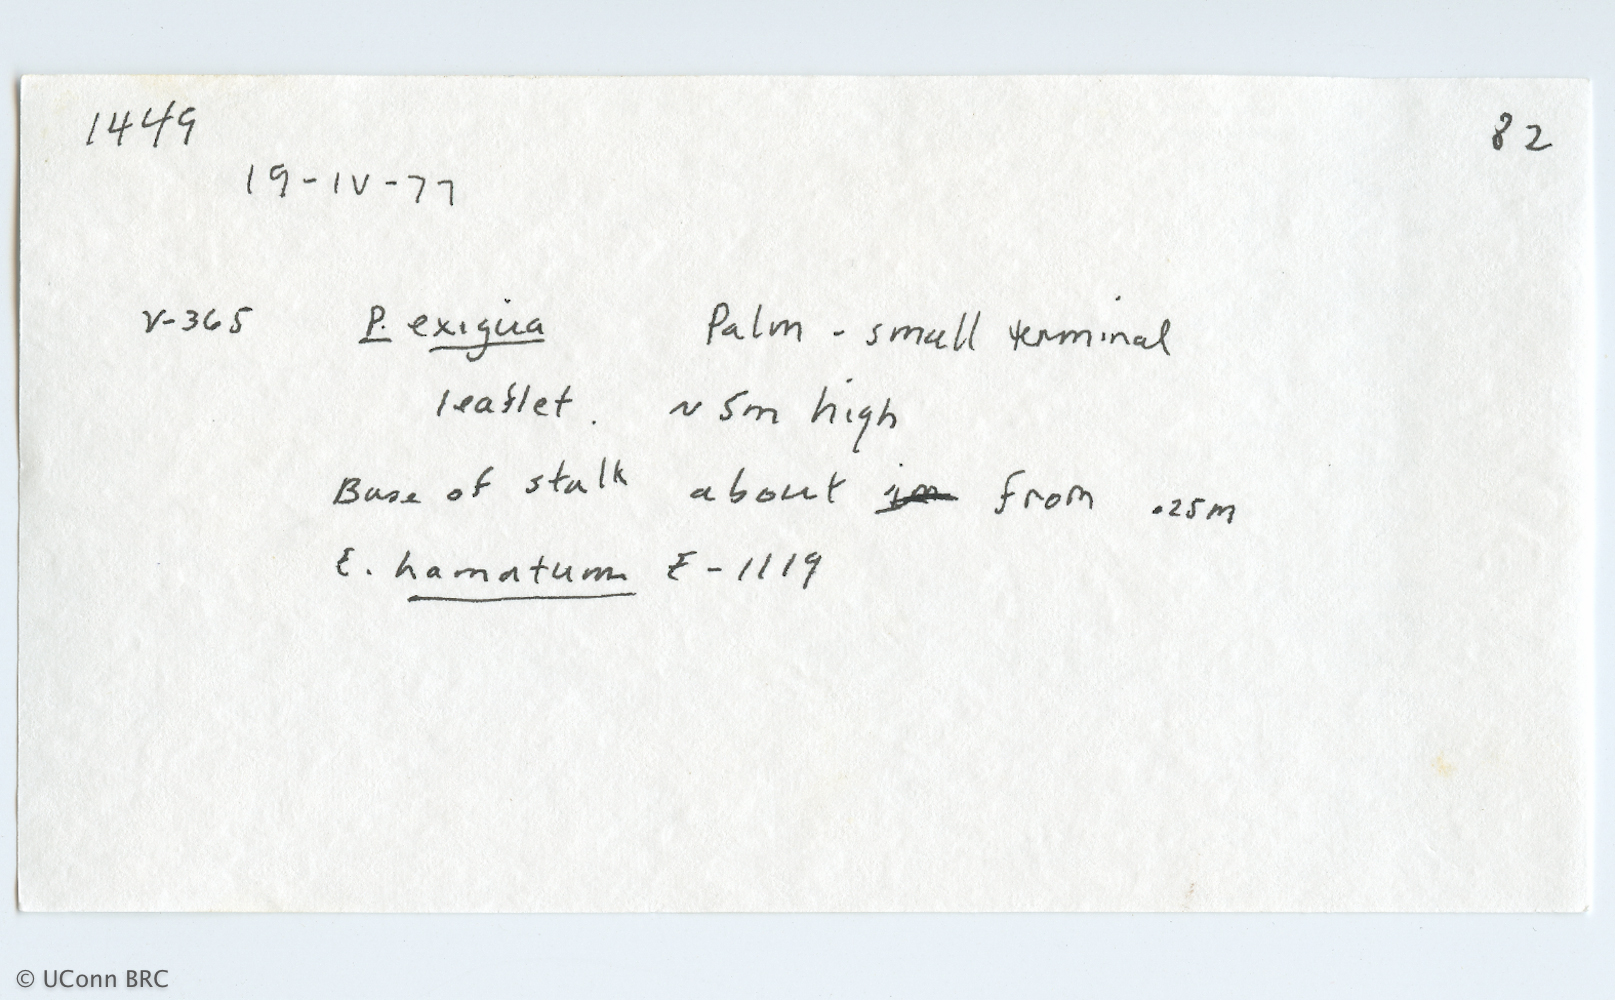 1449
82
19-IV-77
V-365 P. exigua Palm - small terminal
leaflet. ~ 5m high
Base of stalk about from .25m
E. hamatum E-1119
© UConn BRC